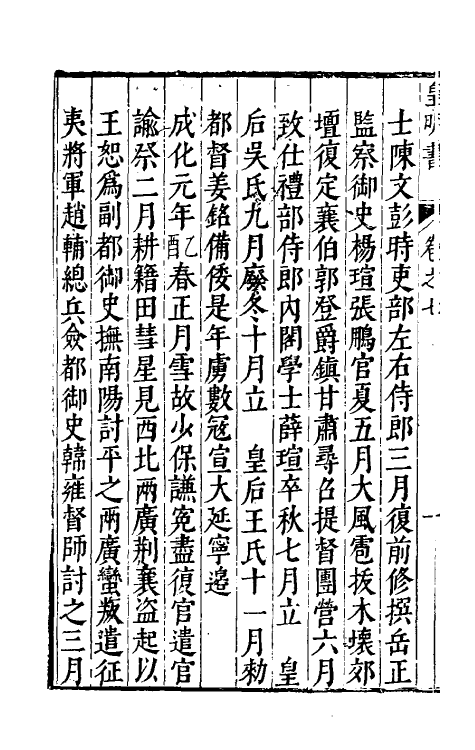 皇明書 卷之七 一
士陳文彭時吏部左右侍郎三月復前修撰岳正
監察御史楊瑄張鵬官夏五月大風雹拔木壞郊
壇復定襄伯郭登爵鎮甘肅尋召提督團營六月
致仕禮部侍郎內閣學士薛瑄卒秋七月立 皇
后吳氏九月廢冬十月立 皇后王氏十一月勑
都督姜銘備倭是年虜數冦宣大延寧邉
成化元年乙酉春正月雪故少保謙冤盡復官遣官
諭祭二月耕籍田彗星見西北兩廣荆襄盗起以
王恕爲副都御史撫南陽討平之兩廣蠻叛遣征
夷將軍趙輔總兵僉都御史韓雍督師討之三月